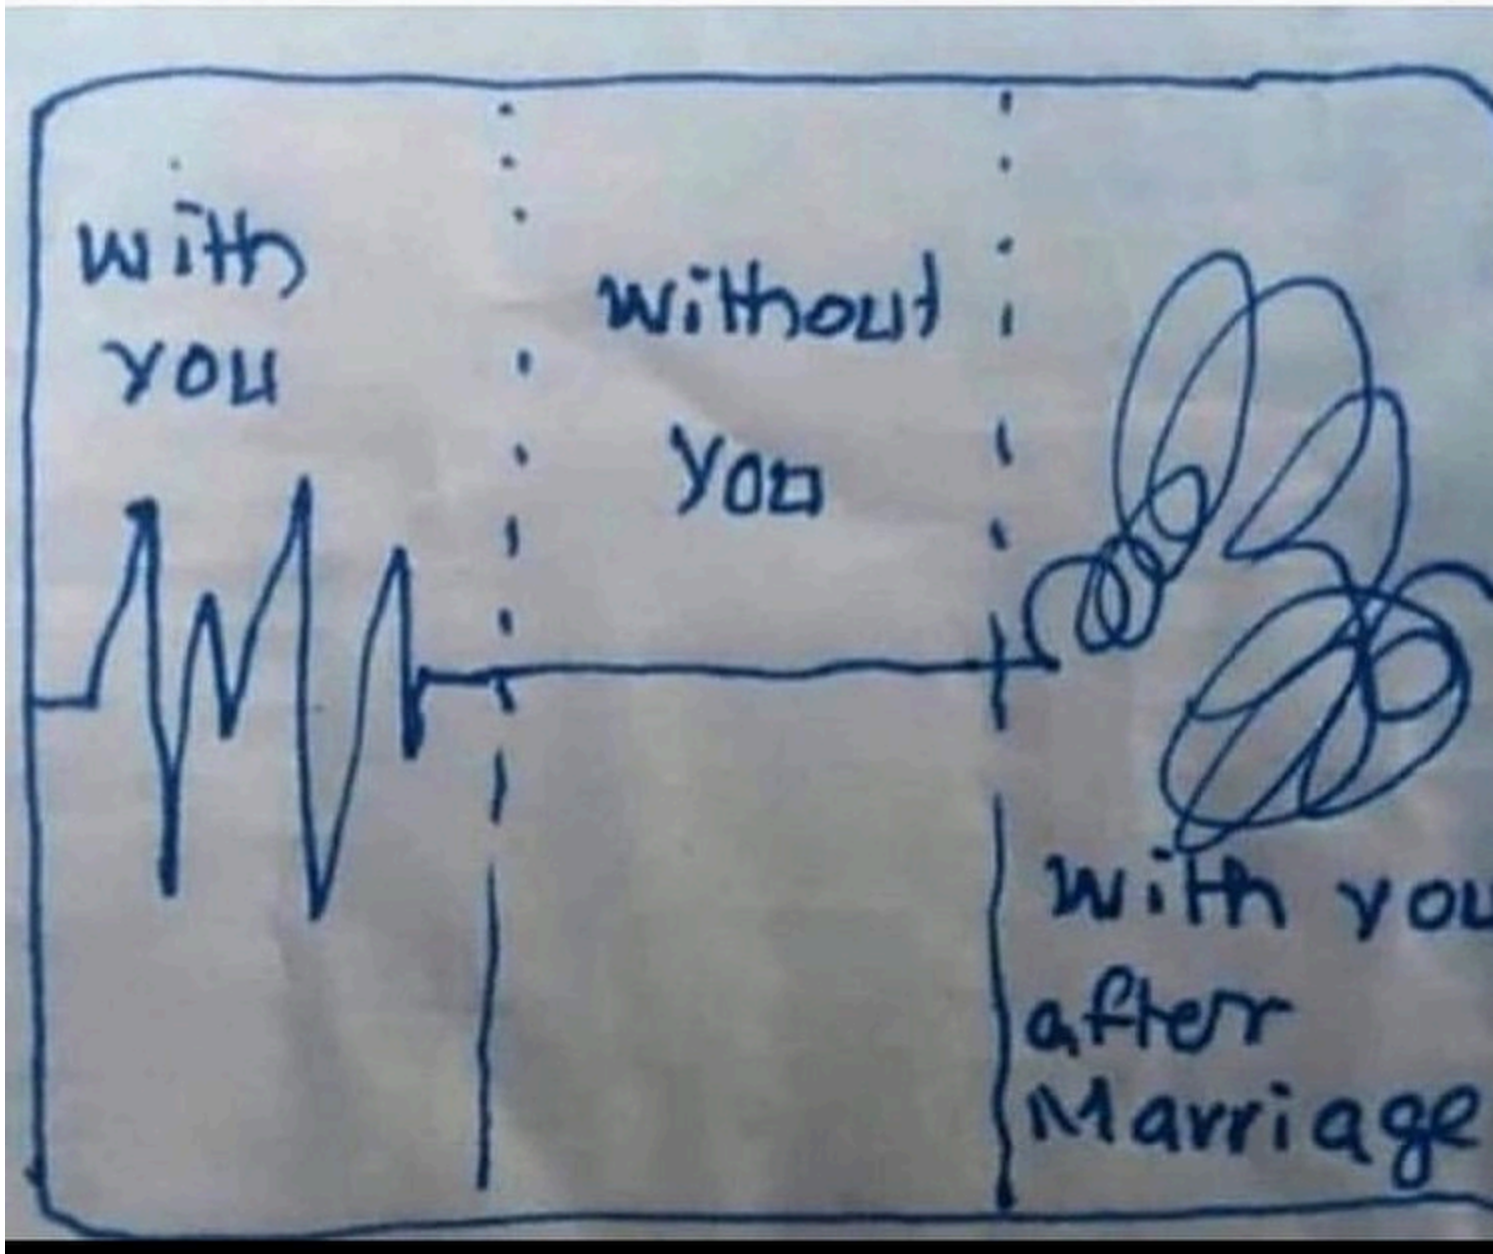 with
you
without
you
with you
after
Marriage